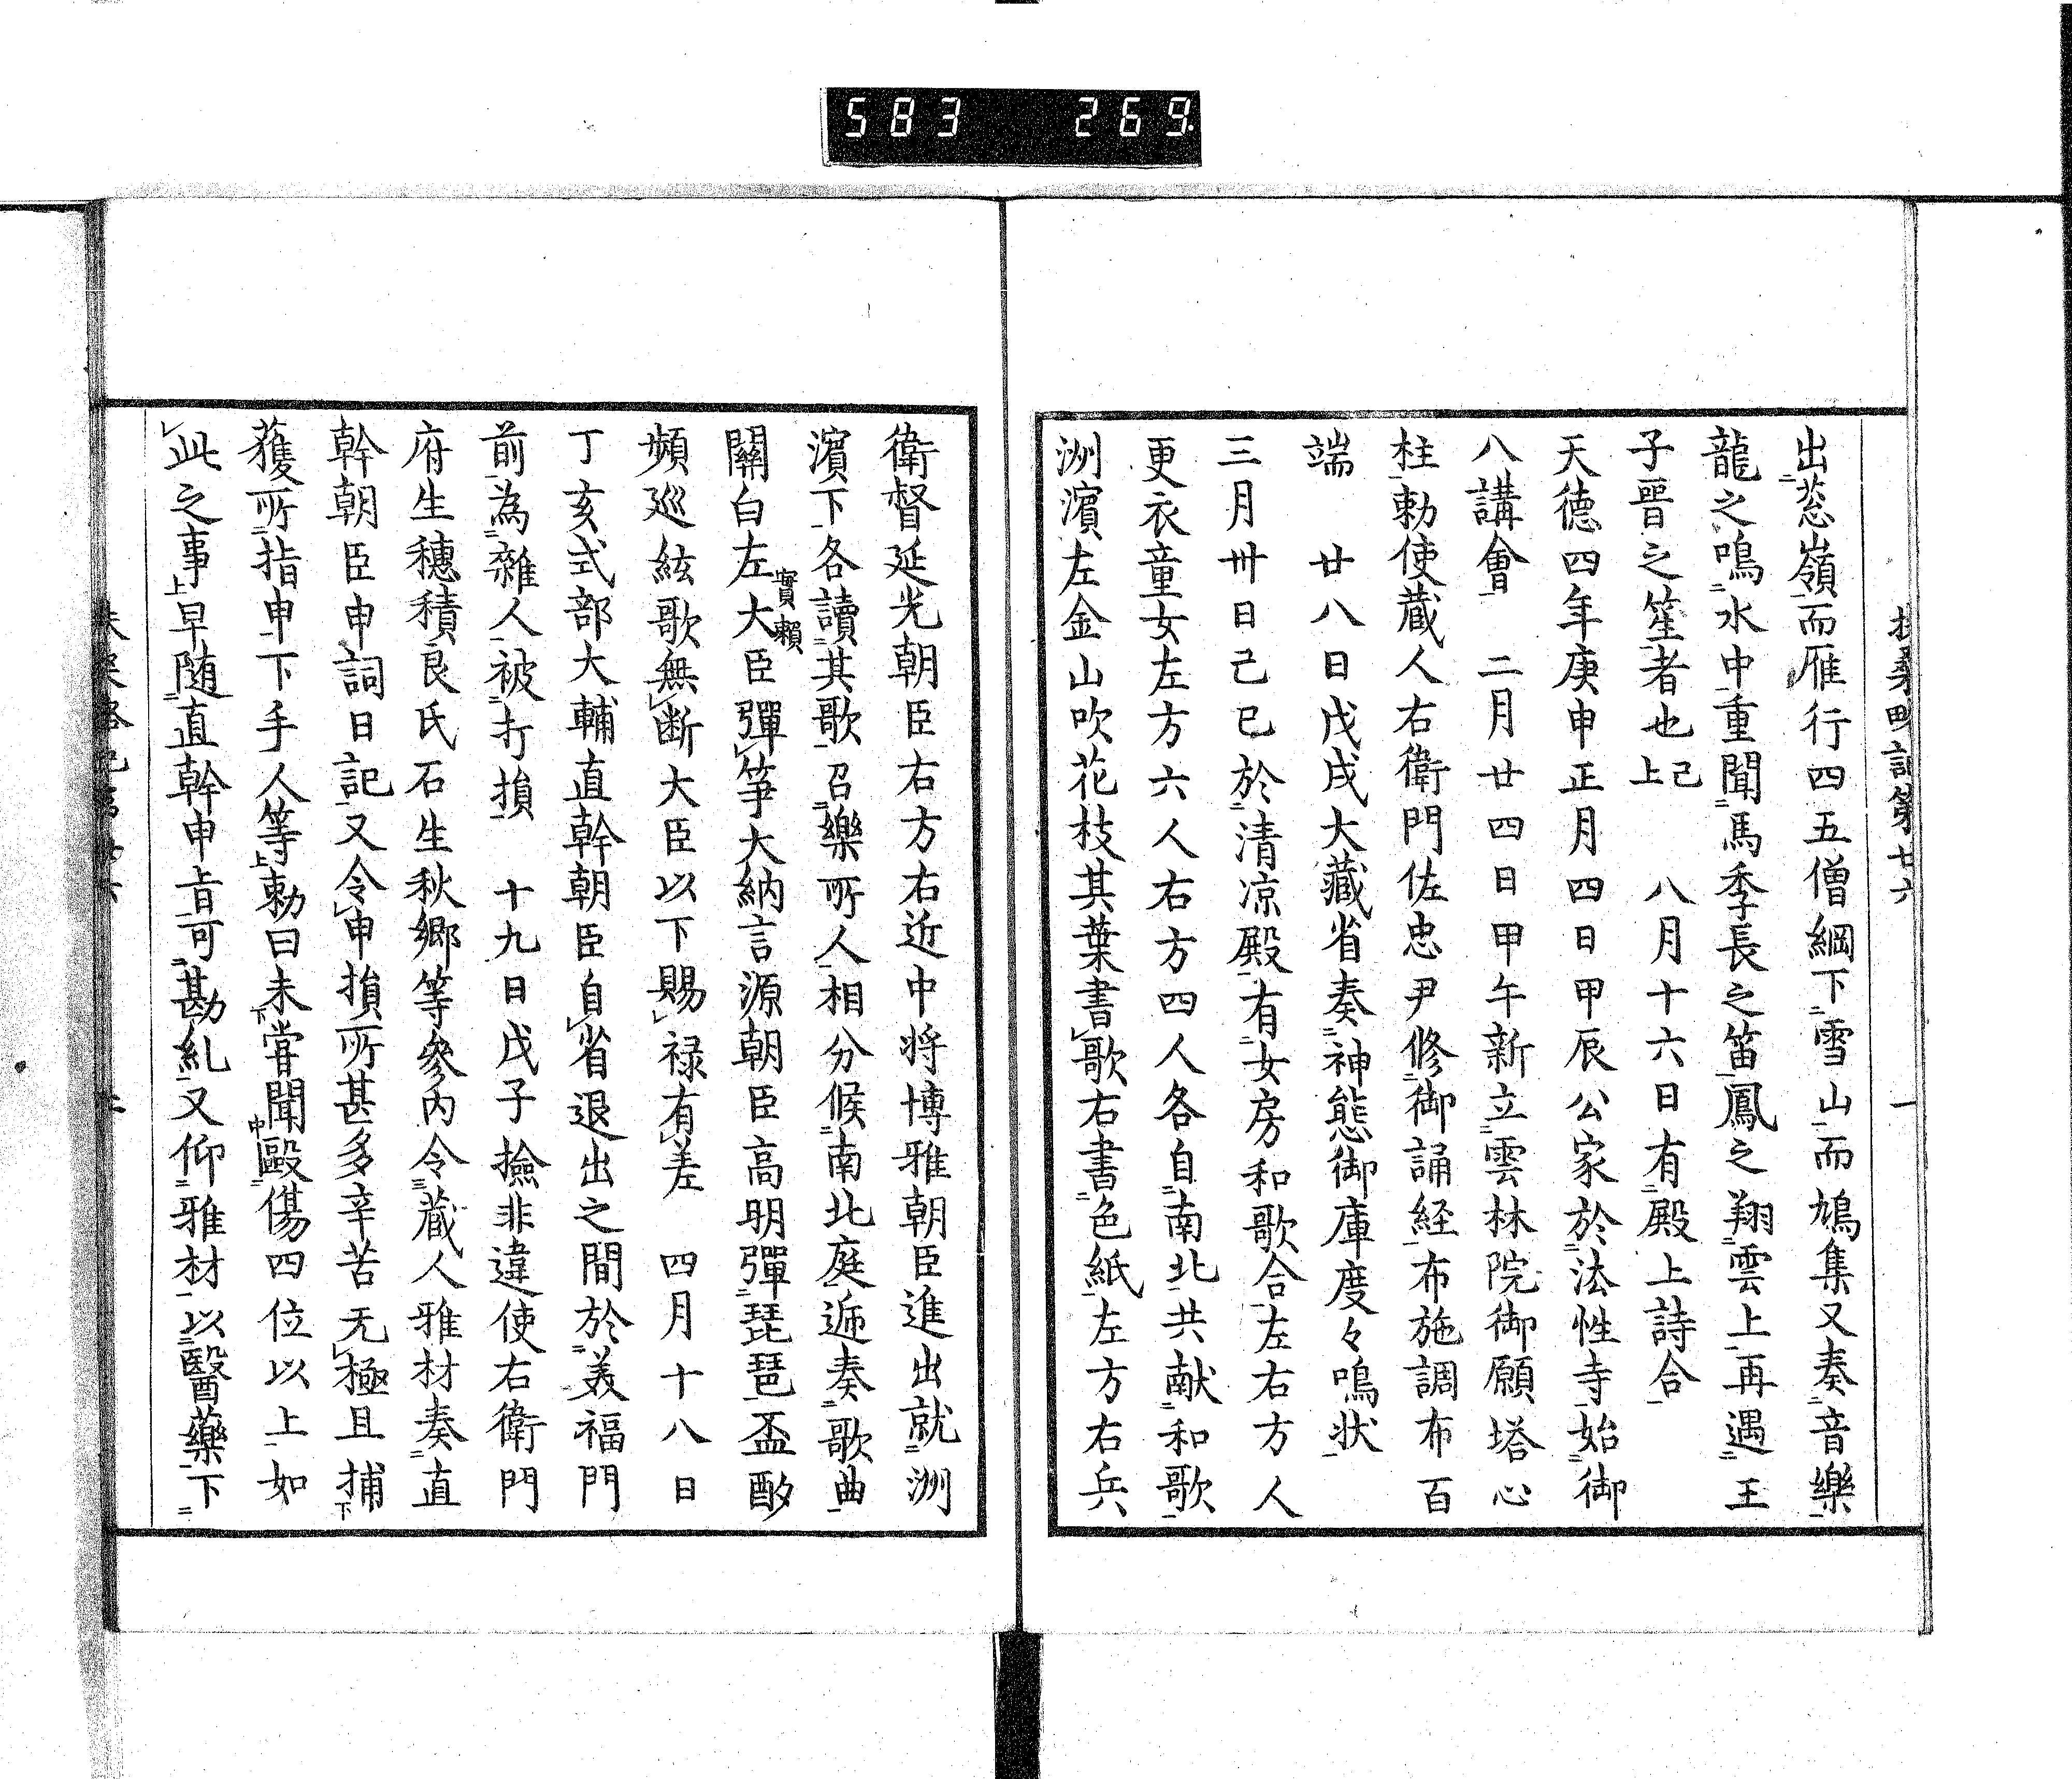 583 269.
扶桑略記第廿六 一
出葱嶺而雁行四五僧綱下雪山而鳩集又奏音樂
龍之鳴水中重聞馬季長之笛鳳之翔雲上再遇王
子晉之笙者也已上 八月十六日有殿上詩合
天徳四年庚申正月四日甲辰公家於法性寺始御
八講會 二月廿四日甲午新立雲林院御願塔心
柱勅使蔵人右衛門佐忠尹修御誦経布施調布百
端 廿八日戊戌大藏省奏神態御庫度々鳴状
三月卅日己巳於清凉殿有女房和歌合左右方人
更衣童女左方六人右方四人各自南北共献和歌
洲濱左金山吹花枝其葉書歌右書色紙左方右兵
衛督延光朝臣右方右近中将博雅朝臣進出就洲
濱下各讀其歌召樂所人相分候南北庭遞奏歌曲
關白左大臣實頼彈筝大納言源朝臣高明彈琵琶盃酌
頻巡絃歌無断大臣以下賜禄有差 四月十八日
丁亥式部大輔直幹朝臣自省退出之間於美福門
前為雜人被打損 十九日戊子撿非違使右衛門
府生穗積良氏石生秋郷等參内令蔵人雅材奏直
幹朝臣申詞日記又令申損所甚多辛苦无極且捕
獲所指申下手人等勅曰未嘗聞毆傷四位以上如
此之事早随直幹申旨可勘糺又仰雅材以醫藥下